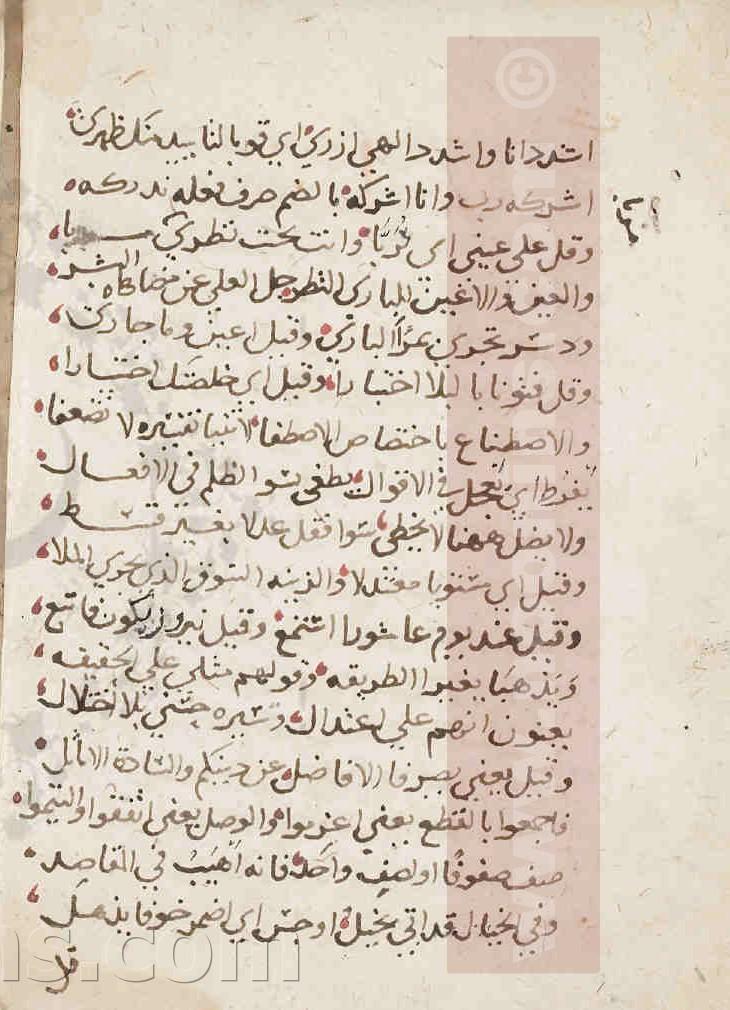 اشدد انا واشدد الهي ازري اي قو بالتاييد منك ظهري
اشركه رب وانا اشركه بالضم حرف فعله ندركه
وقل على عيني اي تربا وانت تحت نظري
والعين والاعين للباري النظر جل العلي عن مضاهاة البشر
ودسر تجري الباري وقيل اعين وما جاري
وقل فتونا بالبلا اختبارا وقيل اي خلصتك اختيارا
والاصطناع باختصاص الاصطفا لا تنيا تفسيره لا تضعفا
يفرط اي يعجل في الاقوال يطغى الظلم في الافعال
ولا يضل ههنا لا يخطي سوا فقل عدلا بغير قسط
وقيل اي مستويا معتدلا والزينه السوق الذي يحوي الملا
وقيل عند يوم عاشورا اسمع وقيل نيروز يكون فاتبع
ويذهبا يغيرا الطريقه وقولهم مثلى على الحقيقه
يعنون انهم على اعتدال وسيره حسنى بلا اختلال
وقيل يعني يصرفا الافاضل عن دينكم والسادة الاماثل
فاجمعوا بالقطع يعني اعزموا والوصل يعني اتفقوا والتيموا
صف صفوفا او لصف واحد فانه اهيب في المقاصد
وفي الخيال قد اتي يخيل اوجس اي اضمر خوفا يذهل
قل